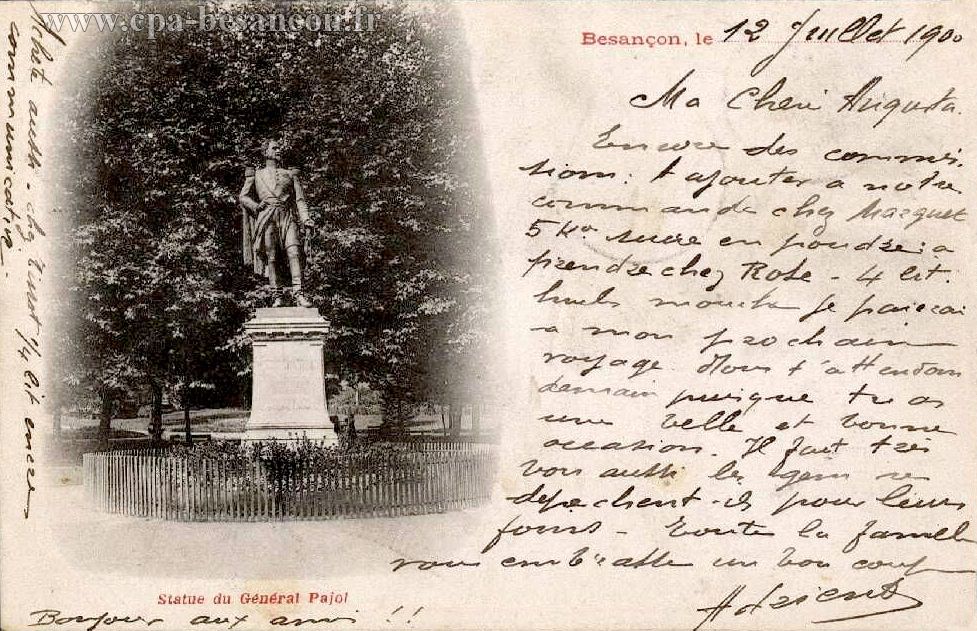 www.cpa-besançon.fr
Besançon, le 12 Juillet 1900
Ma Cheri Augusta.
Encore des commis-
sions: A ajouter a notre
commande chez Macquet
5 Ko sucre en poudre: a
prendre chez Robe - 4 lit.
huile je paierai
a mon prochain
voyage. Nous t'attendons
demain puisque tu as
une belle et bonne
occasion. Il fait très
bon aussi les gens se
depechent-ils pour leurs
foins - Toute la famille
vous embrasse un bon coup
Adrient
Achète aussi - chez 1/4 lit encre
communicative.
Statue du Général Pajol
Bonjour aux amis !!